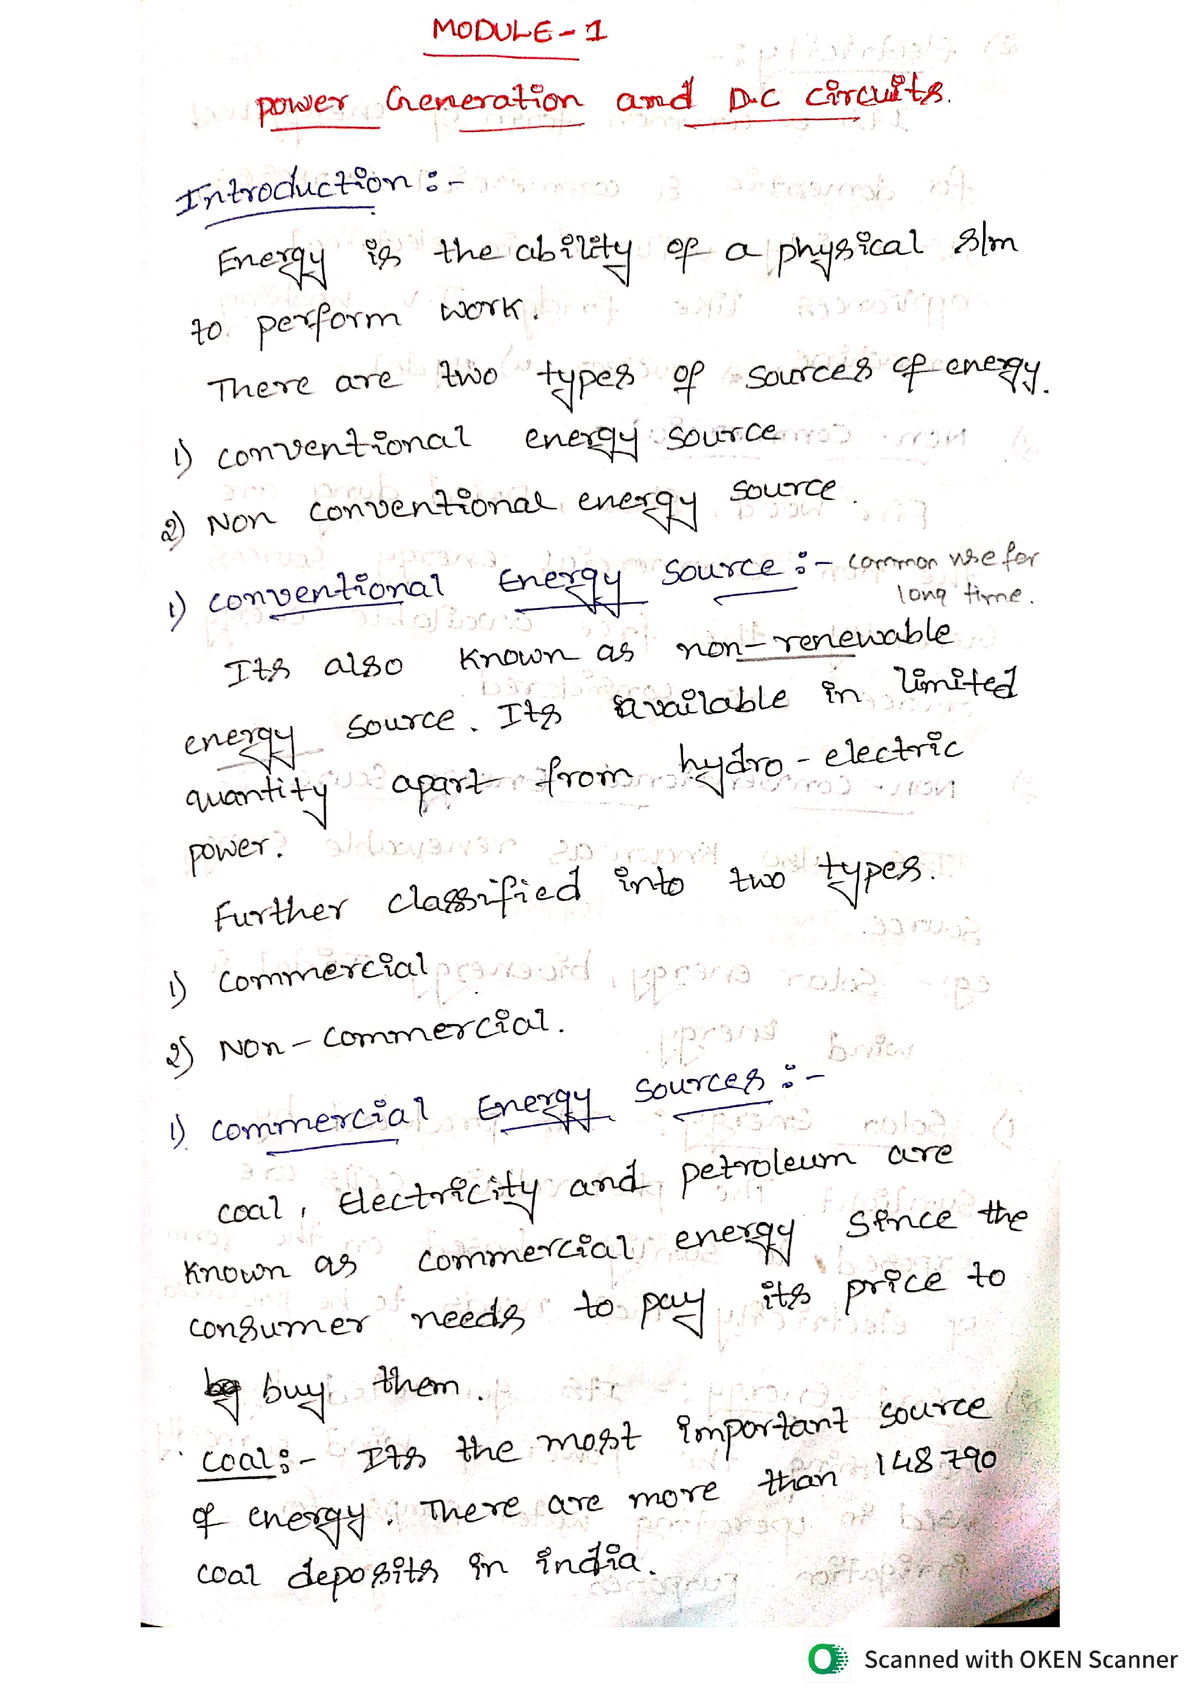 MODULE-1
power Generation and D.C circuits.
Introduction:-
Energy is the ability of a physical s/m
to perform work.
There are two types of sources of energy.
1) conventional energy source
2) Non conventional energy source.
1) conventional Energy Source :- common use for
long time.
Its also known as non-renewable
energy source. Its available in limited
quantity apart from hydro-electric
power.
Further classified into two types.
1) commercial
2) Non-commercial.
1) commercial Energy Sources :-
coal, Electricity and petroleum are
known as commercial energy since the
consumer needs to pay its price to
buy them.
coal:- Its the most important source
of energy. There are more than 148790
coal deposits in india.
Scanned with OKEN Scanner